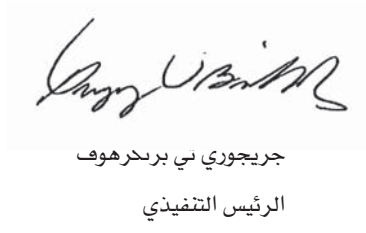 جريجوري تي برنكرهوف
الرئيس التنفيذي